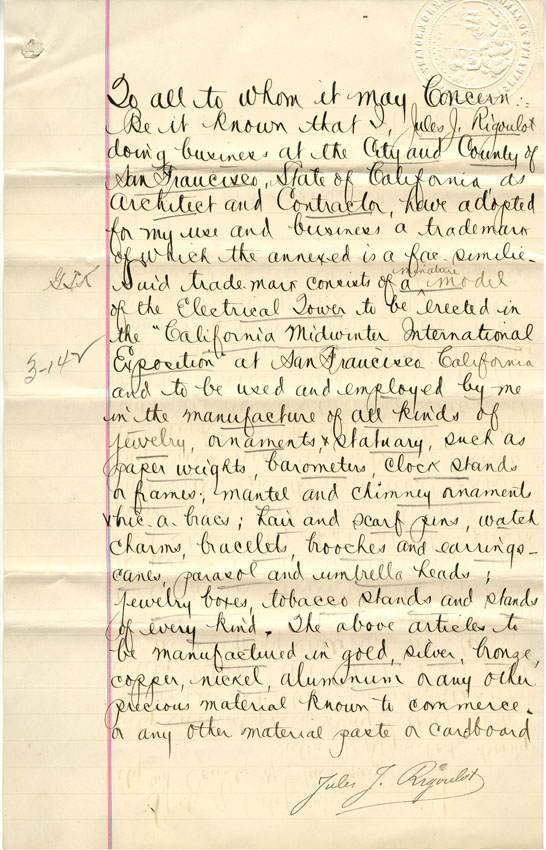 To all to whom it may Concern:
Be it known that I, Jules J. Rigoulot
doing business at the City and County of
San Francisco, State of California, as
Architect and Contractor, have adopted
for my use and business a trademark
of which the annexed is a fac-similie.
Said trade-mark consists of a miniature model
of the Electrical Tower to be erected in
the "California Midwinter International
Exposition" at San Francisco California
3-142
and to be used and employed by me
in the manufacture of all kinds of
jewelry, ornaments, & statuary, such as
paper weights, barometers, clock stands
or frames; mantel and chimney ornaments
bric-a-bracs; hair and scarf pins, watch
charms, bracelets, brooches and earrings-
canes, parasol and umbrella heads;
jewelry boxes, tobacco stands and stands
of every kind. The above articles to
be manufactured in gold, silver, bronze,
copper, nickel, aluminum or any other
precious material known to commerce.
or any other material paste or cardboard
Jules J. Rigoulot